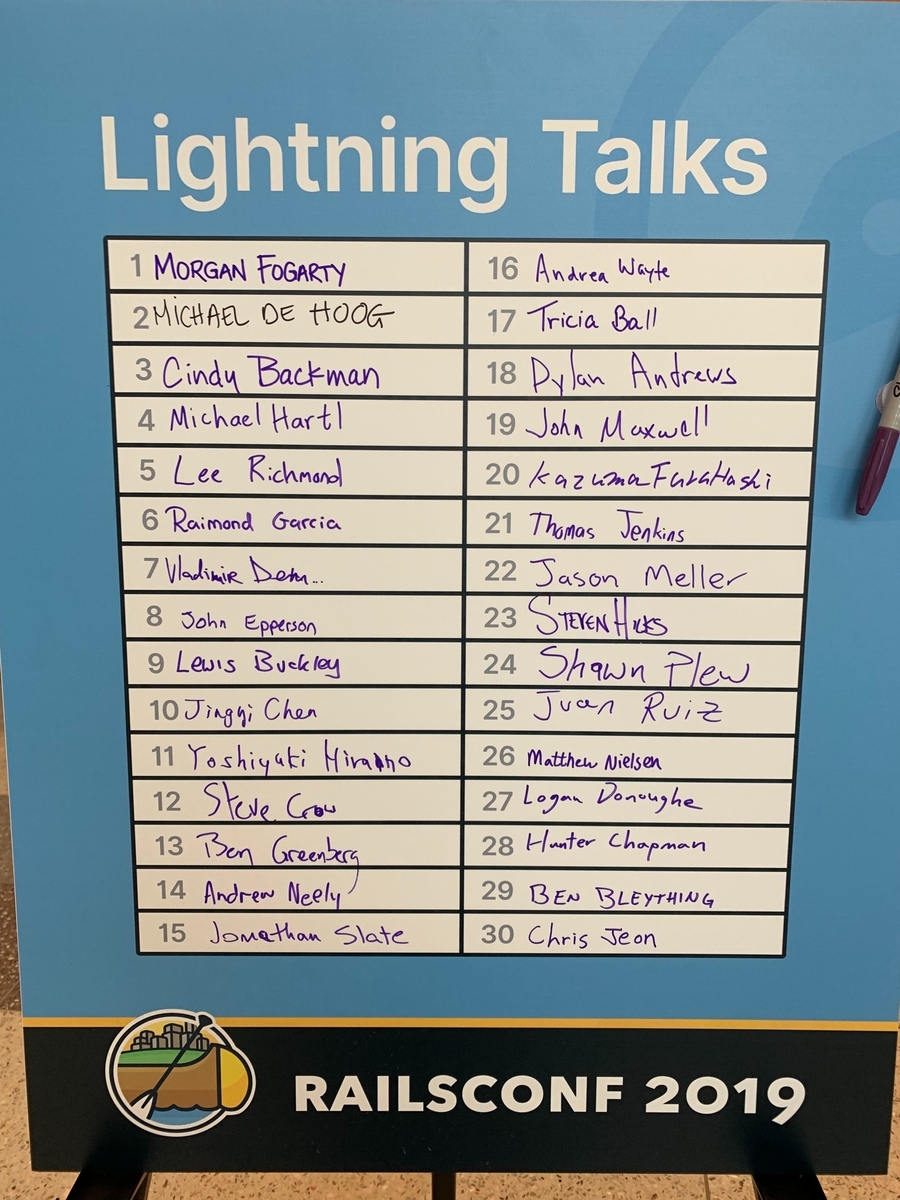 Lightning Talks
1 MORGAN FOGARTY
2 MICHAEL DE HOOG
3 Cindy Backman
4 Michael Hartl
5 Lee Richmond
6 Raimond Garcia
7 Vladimir
8 John Epperson
9 Lewis Buckley
10 Jingyi Chen
11 Yoshiyuki Hirano
12 Steve Crow
13 Ben Greenberg
14 Andrew Neely
15 Jonathan Slate
16 Andrea Wayte
17 Tricia Ball
18 Dylan Andrews
19 John Maxwell
20 Kazuma FuruHashi
21 Thomas Jenkins
22 Jason Meller
23 STEVEN HICKS
24 Shawn Plew
25 Juan Ruiz
26 Matthew Nielsen
27 Logan Donoughe
28 Hunter Chapman
29 BEN BLEYTHING
30 Chris Jeon
RAILSCONF 2019